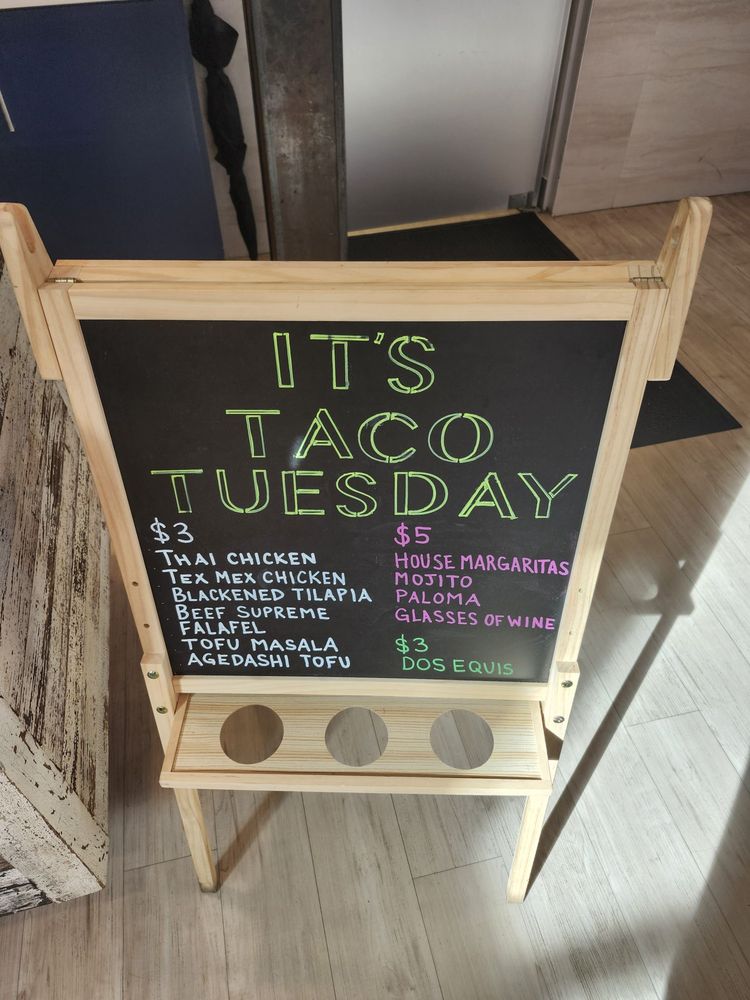 IT'S
TACO
TUESDAY
$3
THAI CHICKEN
TEX MEX CHICKEN
BLACKENED TILAPIA
BEEF SUPREME
FALAFEL
TOFU MASALA
AGEDASHI TOFU
$5
HOUSE MARGARITAS
MOJITO
PALOMA
GLASSES OF WINE
$3
DOS EQUIS